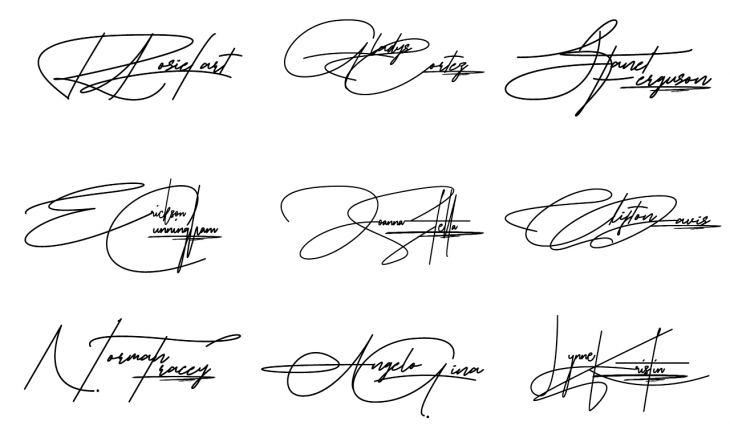 Gladys
Cortez
Janet
Ferguson
Erickson
Cunningham
Joanna
Stella
Clipton
Davis
Norman
Tracey
Angelo
Gina
Lynne
Kristin